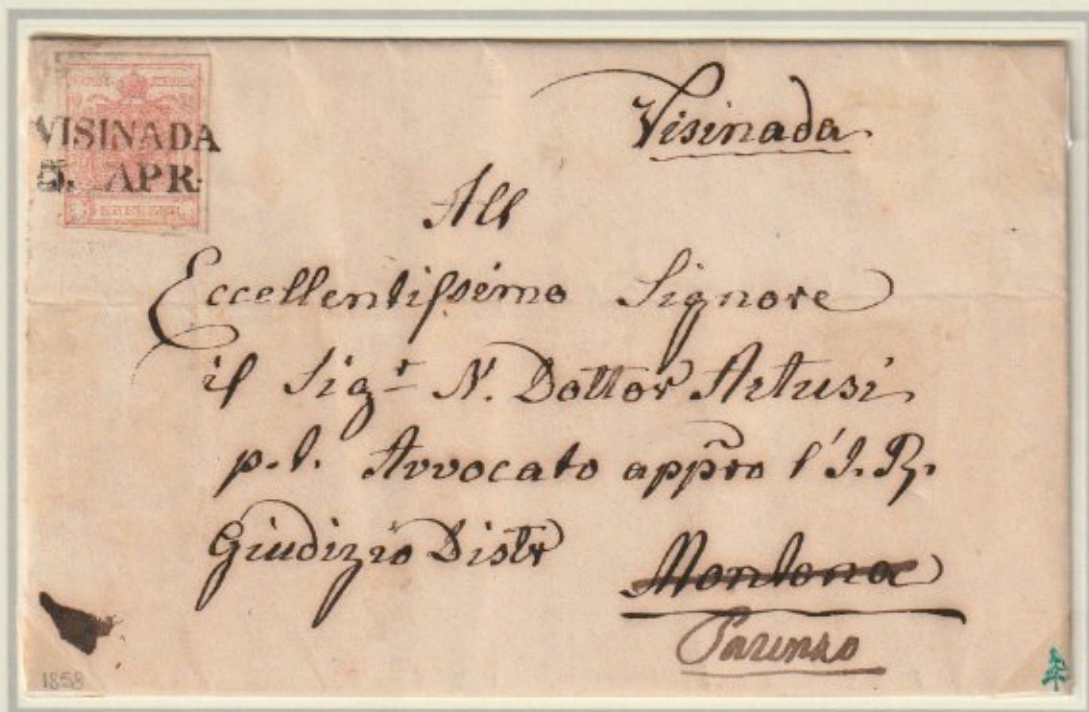 VISINADA
5. APR.
Visinada
All
Eccellentissimo Signore
il Sigr N. Dottor Artusi
p.t. Avvocato appro l'I. R.
Giudizio Distr
Montona
Parenzo
1858